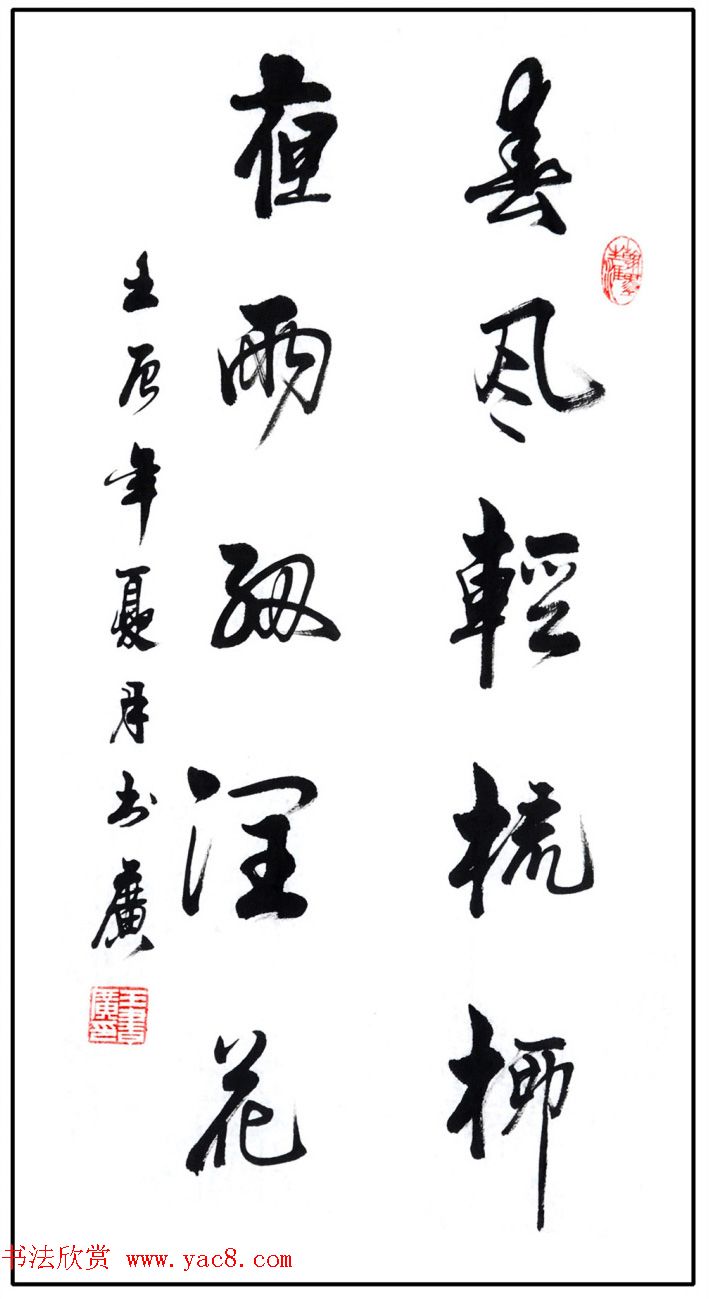 春风輕梳柳
夜雨細润花
壬辰年夏月书廣
王書廣印
书法欣赏 www.yac8.com